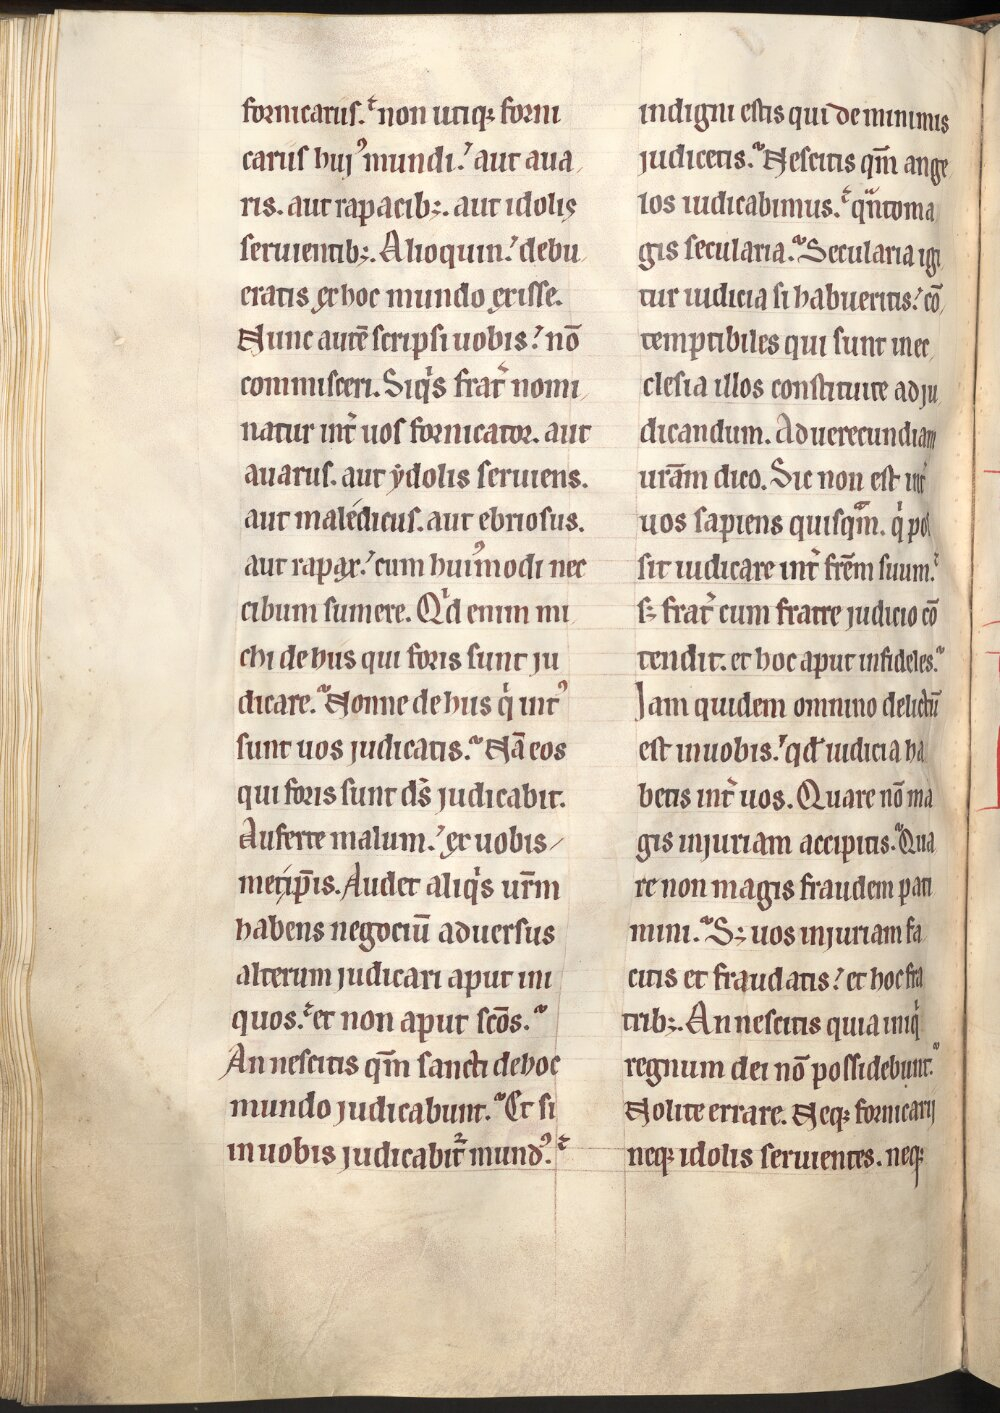 fornicariis. non utiq; forni
cariis huj᾿ mundi. aut aua
ris. aut rapacib;. aut idolis
seruientib;. Alioquin. debu
eratis ex hoc mundo exisse.
Nunc autē scripsi uobis. nō
commisceri. Siqͥs frat᷑ nomi
natur int᷑ uos fornicator. aut
auarus. aut ydolis seruiens.
aut maledicus. aut ebriosus.
aut rapax. cum hui᾿modi nec
cibum sumere. Qͥd enim mi
chi de hus qui foris sunt ju
dicare. Nonne de hus qͥ int᾿
sunt uos judicatis. Nā eos
qui foris sunt dš judicabit.
Auferte malum. ex uobis
metip̄is. Audet aliqͥs ur̄m
habens negociū aduersus
alterum judicari aput ini
quos. et non aput sc̄os.
An nescitis qm̄ sancti de hoc
mundo judicabunt. Et si
in uobis judicabit᷑ mund᾿.
indigni estis qui de minimis
judicetis. Nescitis qm̄ ange
los iudicabimus. qͣnto ma
gis secularia. Secularia igi
tur iudicia si habueritis. cō
temptibiles qui sunt in ec
clesia illos constituite ad ju
dicandum. Ad uerecundiam
ur̄am dico. Sic non est int᷑
uos sapiens quisqͣm. qͥ pos
sit iudicare int᷑ fr̄em suum.
s; frat᷑ cum fratre judicio cō
tendit. et hoc aput infideles.
Jam quidem omnino delictū
est in uobis. qd̄ iudicia ha
betis int᷑ uos. Quare nō ma
gis injuriam accipitis. Qua
re non magis fraudem pati
mini. S; uos injuriam fa
citis et fraudatis. et hoc fra
trib;. An nescitis quia iniqͥ
regnum dei nō possidebunt.
Nolite errare. Neq; fornicarij
neq; idolis seruientes. neq;